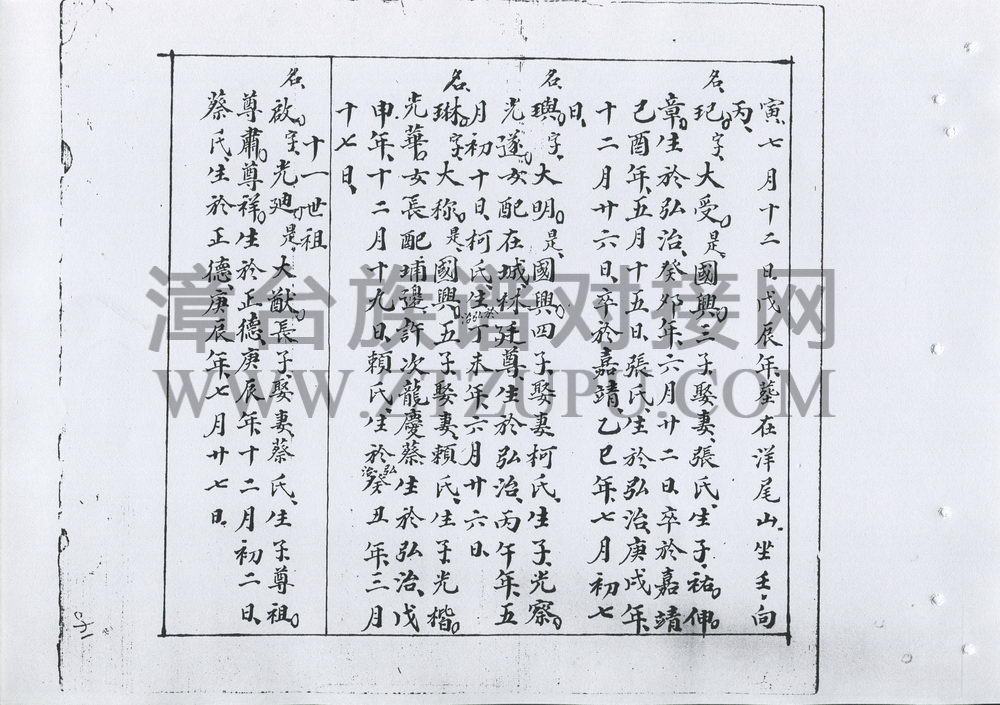 寅、七月十二日、戊辰年、墓在洋尾山、坐壬、向
丙、
名、玘。字、大受。是、國興三子、娶妻、張氏、生子、祐。伸。
章。生於弘治、癸夘年、六月廿二日、卒於嘉靖
己酉年、五月十五日、張氏、生於弘治、庚戌年、
十二月廿六日、卒於嘉靖、乙巳年、七月初七
日、
名、璵。字、大明。是、國興四子、娶妻柯氏、生子、光察。
光遂。女配在城、林廷尊、生於弘治、丙午年、五
月初十日、柯氏、生弘治於丁未年、六月廿六日、
名、琳。字、大称。是、國興五子、娶妻、賴氏、生子光楷。
光華。女長配埔邊、許次龍慶蔡生於弘治、戊
申年、十二月十九日、賴氏、生於弘治癸丑年、三月
十七日、
十一世祖
名、啟。字、光廸。是、大猷長子、娶妻蔡氏、生子、尊祖。
尊肅。尊祥。生於正德、庚辰年、十二月初二日、
蔡氏、生於正德、庚辰年、七月廿七日、
漳台族谱对接网
WWW.ZTZUPU.COM